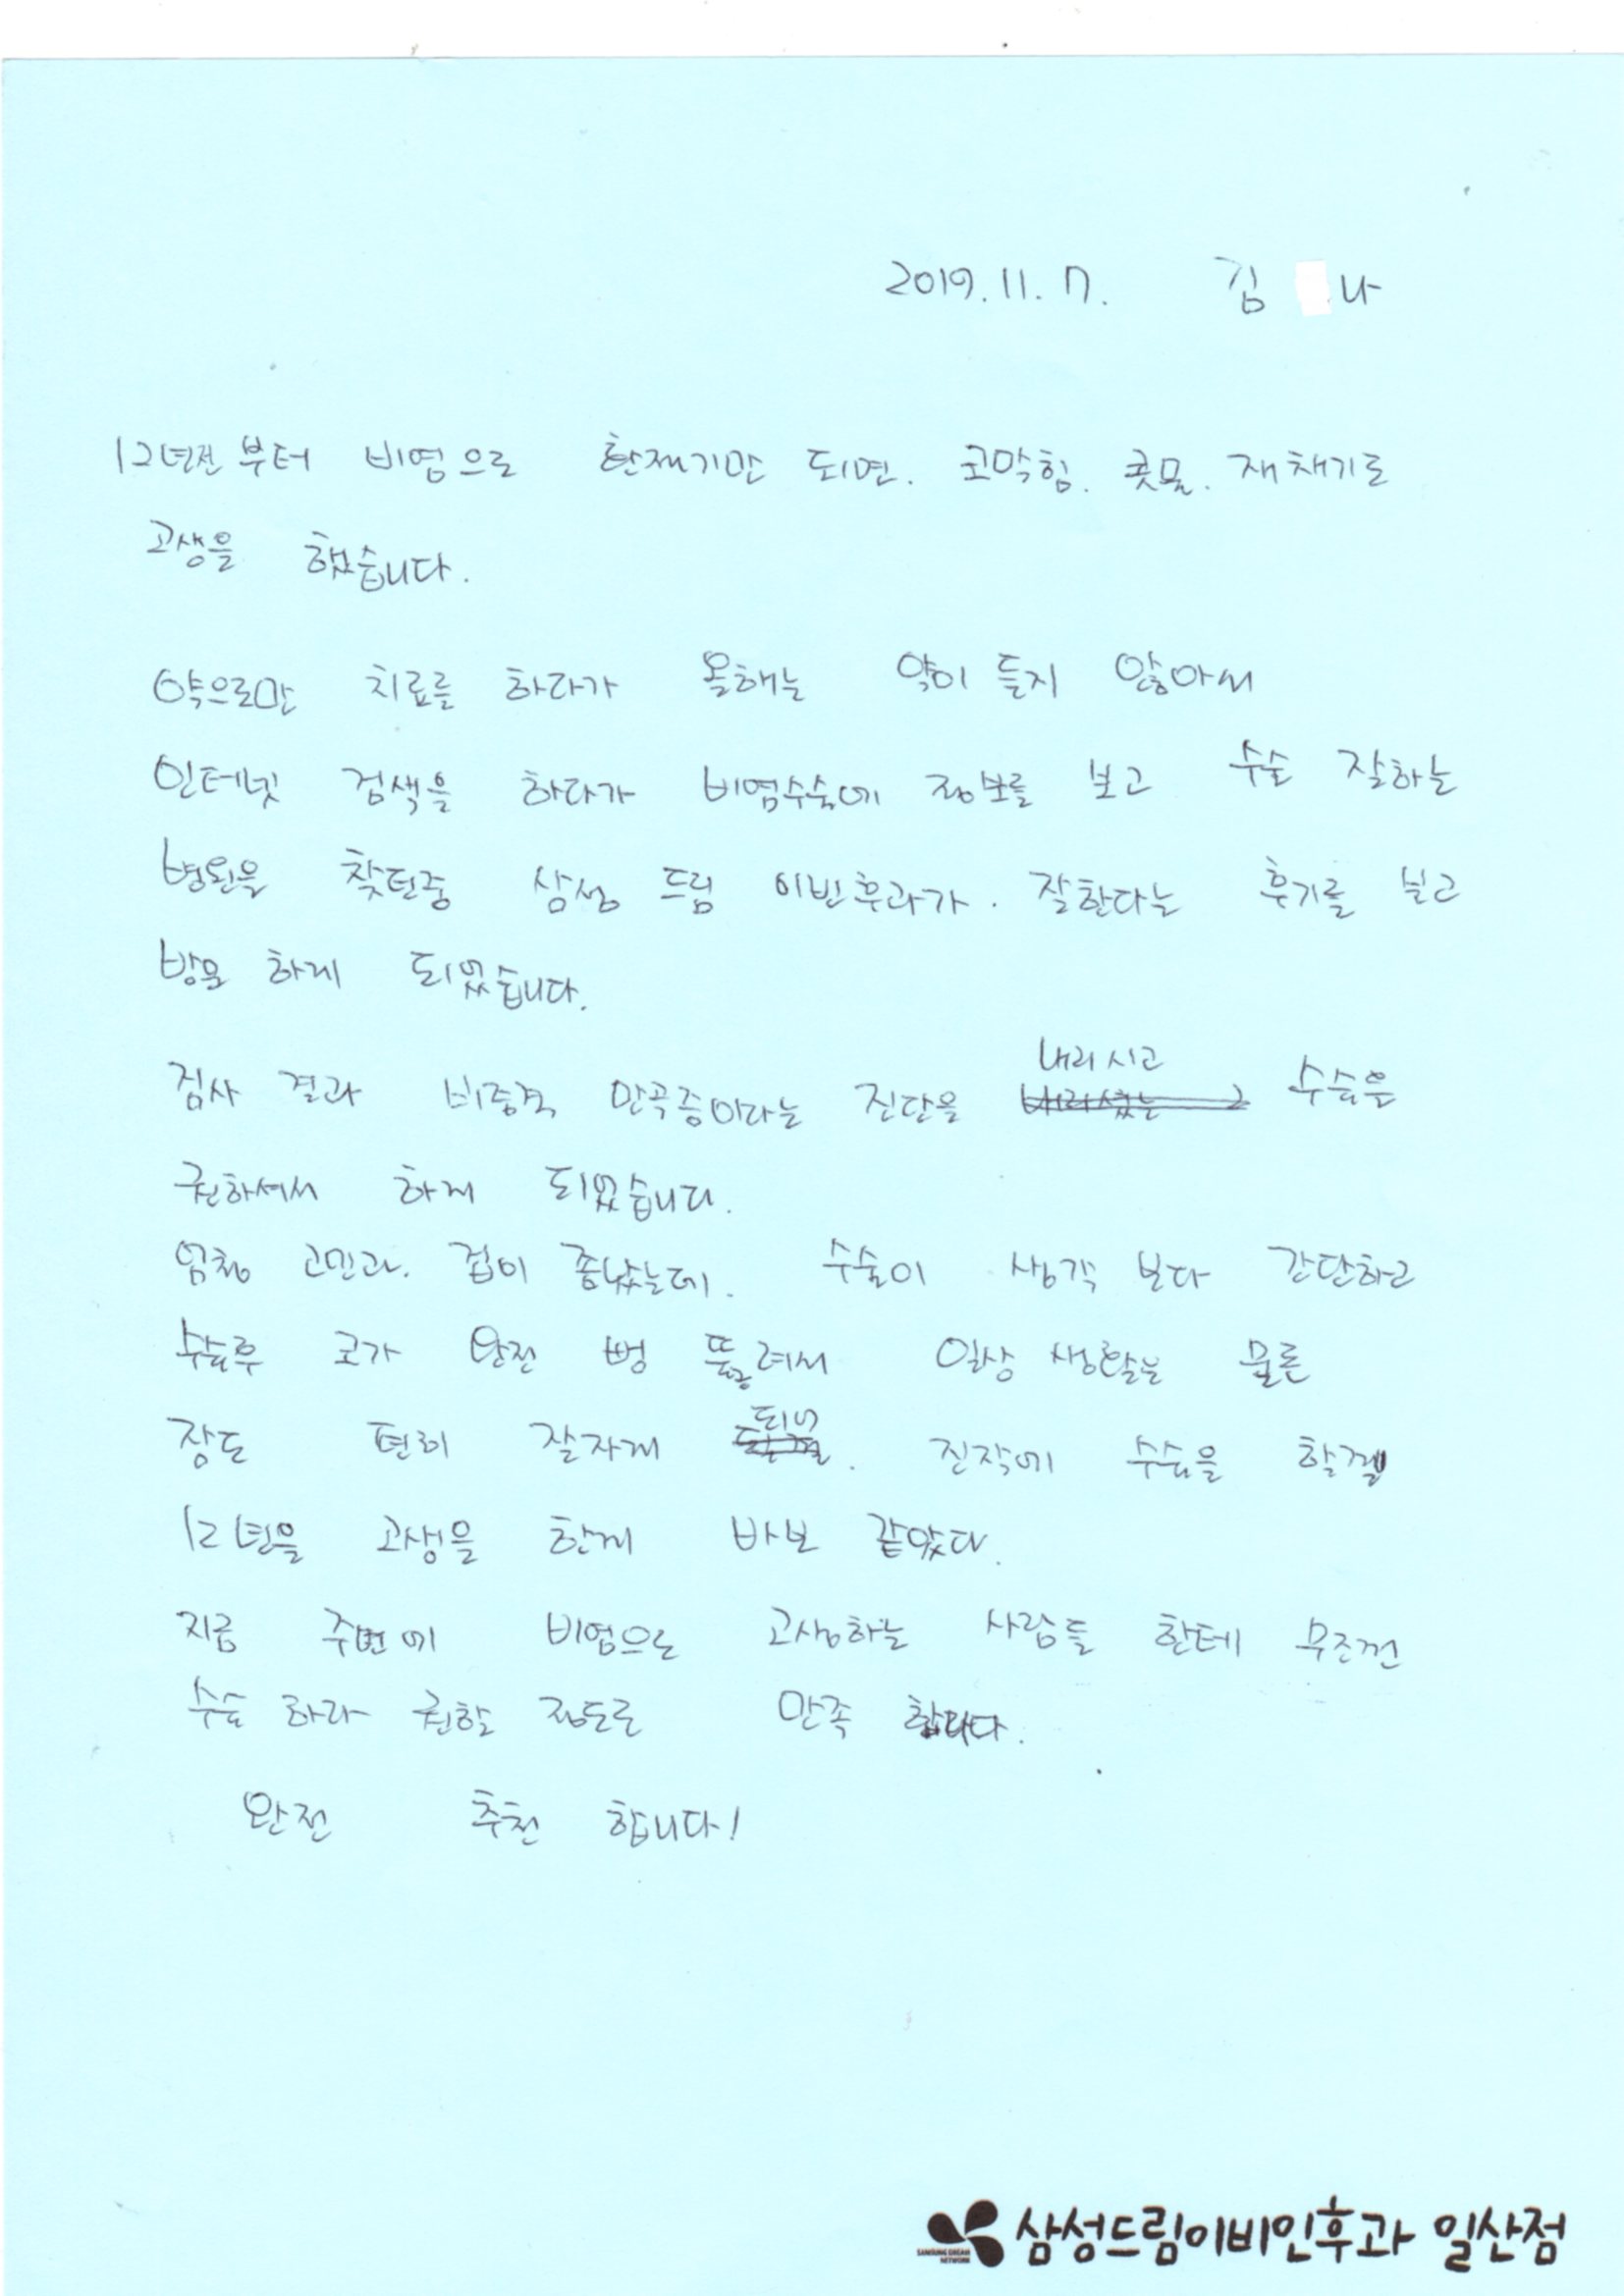 2019. 11. 7. 김 나
12년전 부터 비염으로 환재기만 되면. 코막힘. 콧물. 재채기로
고생을 했습니다.
약으로만 치료를 하다가 올해는 약이 듣지 않아서
인터넷 검색을 하다가 비염수술에 정보를 보고 수술 잘하는
병원을 찾던중 삼성 드림 이빈후과가. 잘한다는 후기를 보고
방문 하게 되었습니다.
검사 결과 비중격 만곡증이라는 진단을 내리시고 수술을
권하셔서 하게 되었습니다.
엄청 고민과. 겁이 났는데. 수술이 생각 보다 간단하고
수술후 코가 완전 뻥 뚫려서 일상 생활은 물론
잠도 편히 잘자게 되어. 진작에 수술을 할껄
12년을 고생을 한게 바보 같았다.
지금 주변에 비염으로 고생하는 사람들 한테 무조껀
수술 하라 권할 정도로 만족 합니다.
완전 추천 합니다!
삼성드림이비인후과 일산점
SAMSUNG DREAM
NETWORK